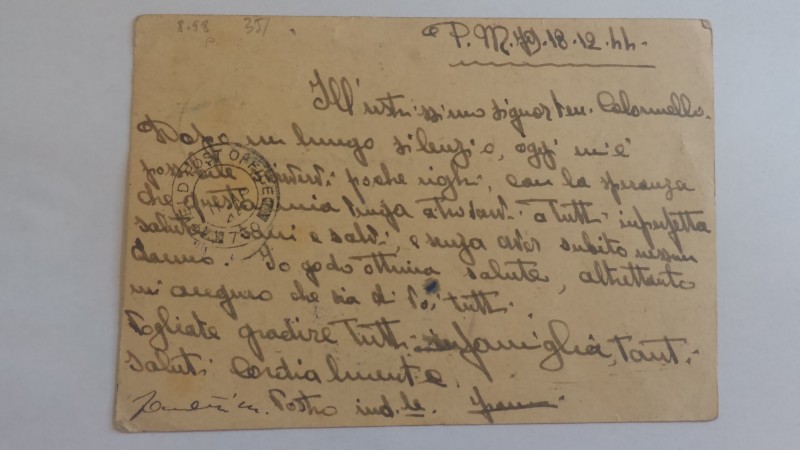 8.98 35/
P.M. 18.12.44.
Ill'ustrissimo signor Ten. Colonnello.
Dopo un lungo silenzio, oggi mi è
possibile poche righi, con la speranza
che questa mia venga a trovarvi a tutti in perfetta
salute, sani e salvi, e senza aver subito nessun
danno. Io godo ottima salute, altrettanto
mi auguro che sia di Voi tutti.
Vogliate gradire tutti in famiglia, tanti
saluti cordialmente,
Vostro ind.le.
FIELD POST OFFICE
758